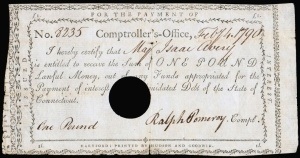 FOR THE PAYMENT OF
No. 8235 Comptroller's-Office, Feb 1790
I hereby certify that Isaac
is entitled to receive the Sum of ONE POUND
Lawful Money, out of any Funds appropriated for the
Payment of interest Consolidated Debt of the State of
Connecticut.
One Pound Ralph Pomeroy Compt.
HARTFORD: PRINTED BY HUDSON AND GOODWIN.